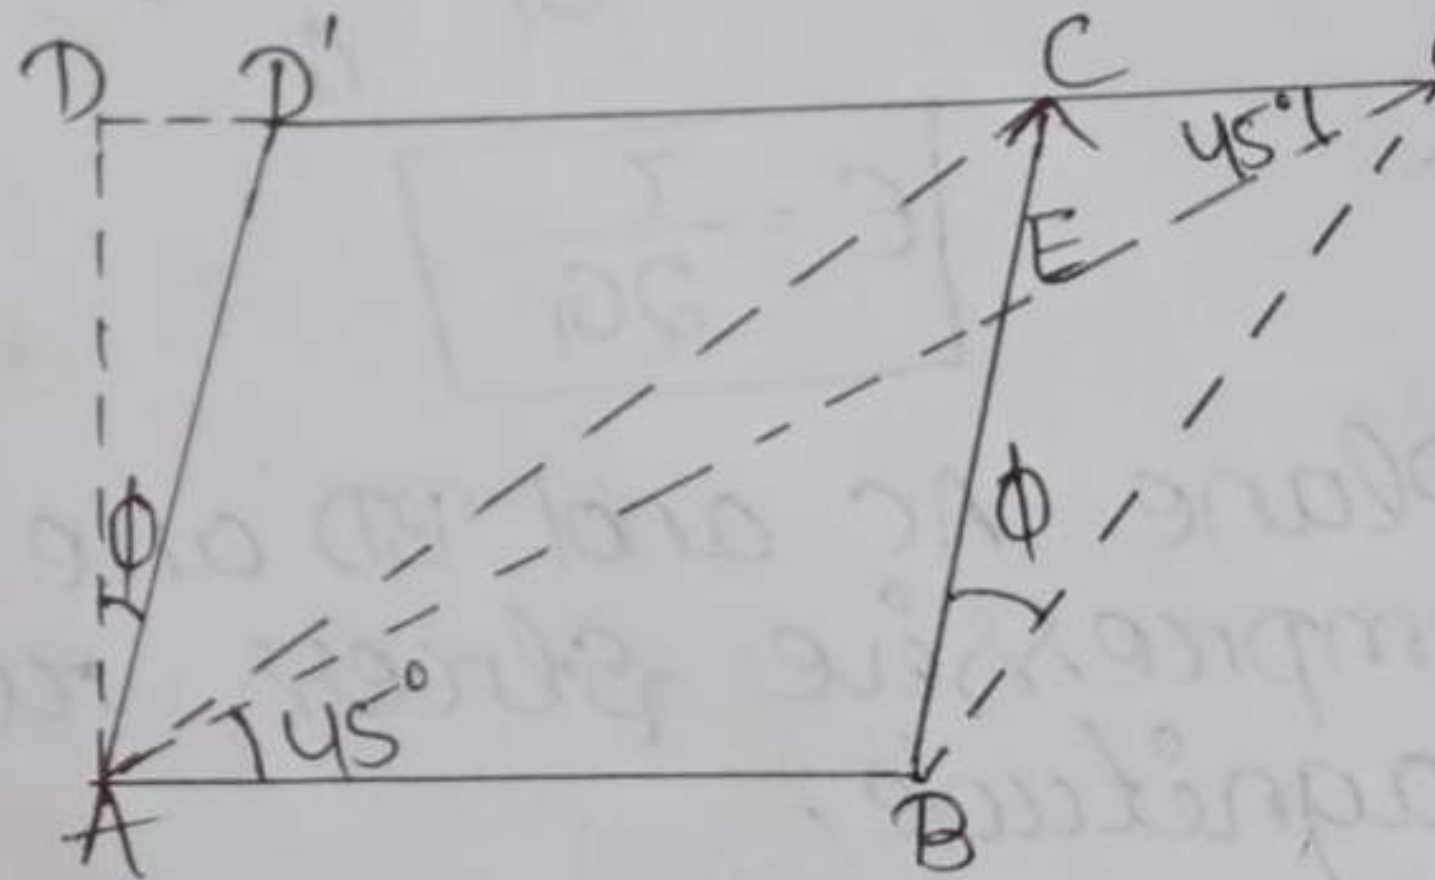 D D' C
45°
E
φ φ
45°
A B